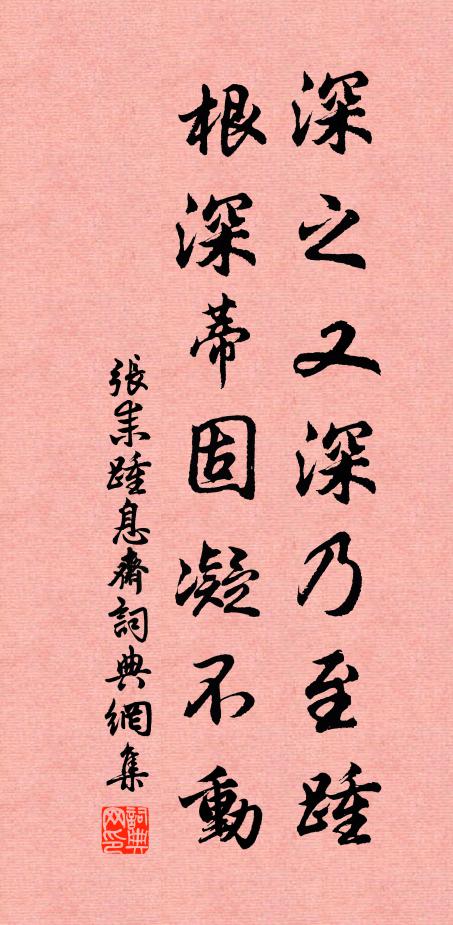 深之又深乃至踵
根深蒂固凝不動
張耒踵息齋詞典網集
詞典
网印